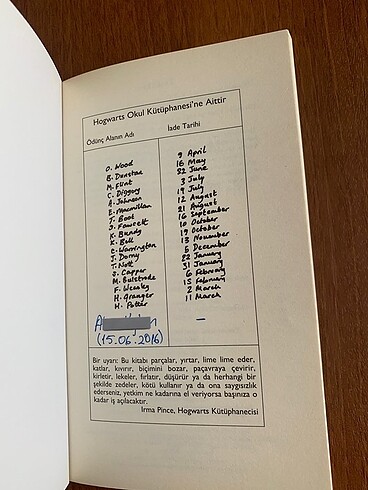 Hogwarts Okul Kütüphanesi'ne Aittir
Ödünç Alanın Adı İade Tarihi
O. Wood 9 April
B. Dunstan 16 May
M. Flint 22 June
C. Diggory 3 July
A. Johnson 19 July
E. Macmillan 12 August
T. Boot 21 August
S. Fawcett 16 September
K. Bundy 10 October
K. Bell 19 October
C. Warrington 13 November
J. Dorny 5 December
T. Nott 22 January
S. Capper 31 January
M. Bulstrode 6 February
F. Weasley 15 February
H. Granger 2 March
H. Potter 11 March
(15.06.2016)
Bir uyarı: Bu kitabı parçalar, yırtar, lime lime eder,
katlar, kıvırır, biçimini bozar, paçavraya çevirir,
kirletir, lekeler, fırlatır, düşürür ya da herhangi bir
şekilde zedeler, kötü kullanır ya da ona saygısızlık
ederseniz, yetkim ne kadarına el veriyorsa başınıza o
kadar iş açılacaktır.
Irma Pince, Hogwarts Kütüphanecisi